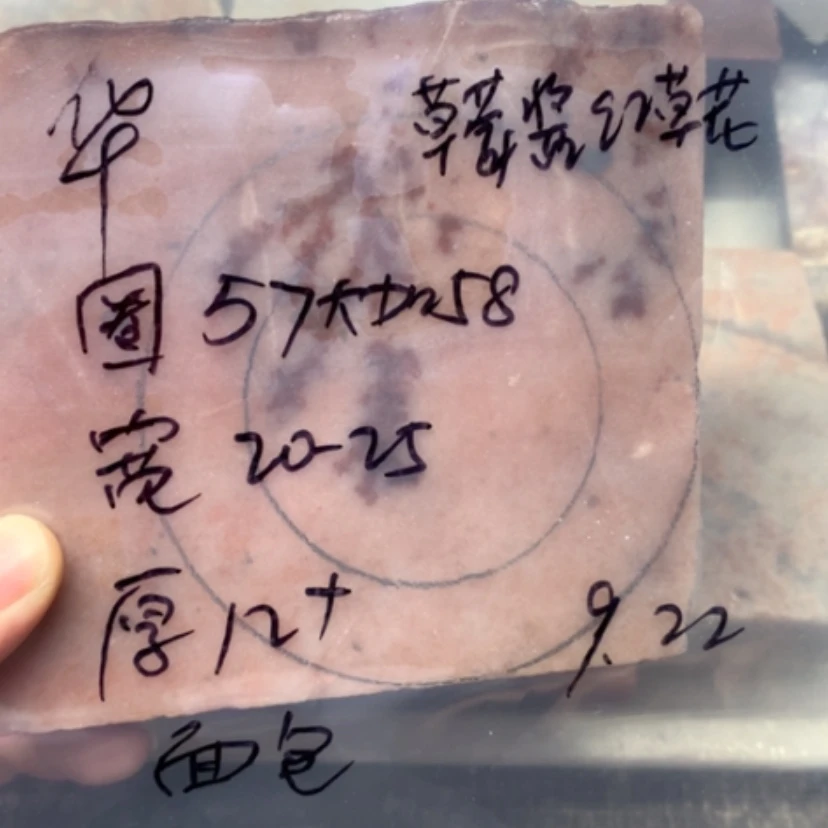 华
草莓酱红草花
圈 57大如58
宽 20-25
厚 12+
9.22
面包